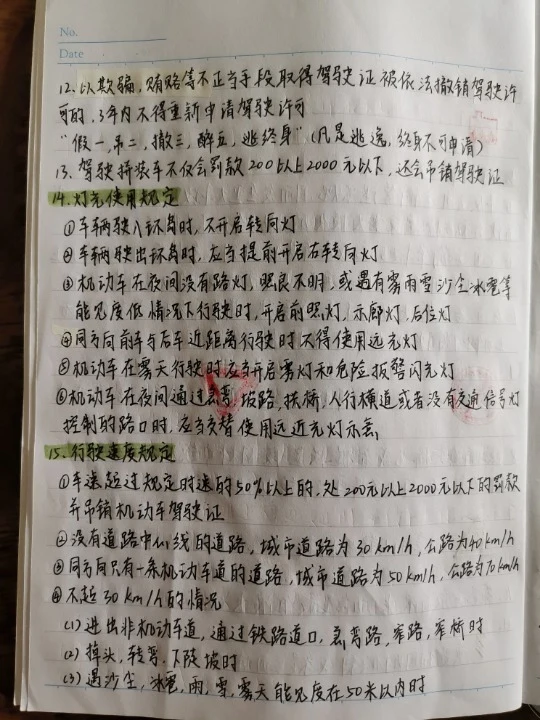 No.
Date
12. 以欺骗，贿赂等不正当手段取得驾驶证被依法撤销驾驶许
可的，3年内不得重新申请驾驶许可
"假一，吊二，撤三，醉五，逃终身"（凡是逃逸，终身不可申请）
13. 驾驶拼装车不仅会罚款200以上2000元以下，还会吊销驾驶证
14. 灯光使用规定
①车辆驶入环岛时，不开启转向灯
②车辆驶出环岛时，应当提前开启右转向灯
③机动车在夜间没有路灯，照良不明，或遇有雾雨雪沙尘冰雹等
能见度低情况下行驶时，开启前照灯，示廓灯，后位灯
④同方向前车与后车近距离行驶时不得使用远光灯
⑤机动车在雾天行驶时应当开启雾灯和危险报警闪光灯
⑥机动车在夜间通过急弯，坡路，拱桥，人行横道或者没有交通信号灯
控制的路口时，应当交替使用远近光灯示意
15. 行驶速度规定
①车速超过规定时速的50%以上的，处200元以上2000元以下的罚款
并吊销机动车驾驶证
②没有道路中心线的道路，城市道路为30km/h，公路为40km/h
③同方向只有一条机动车道的道路，城市道路为50km/h，公路为70km/h
④不超30km/h的情况
(1) 进出非机动车道，通过铁路道口，急弯路，窄路，窄桥时
(2) 掉头，转弯，下陡坡时
(3) 遇沙尘，冰雹，雨，雪，雾天能见度在50米以内时